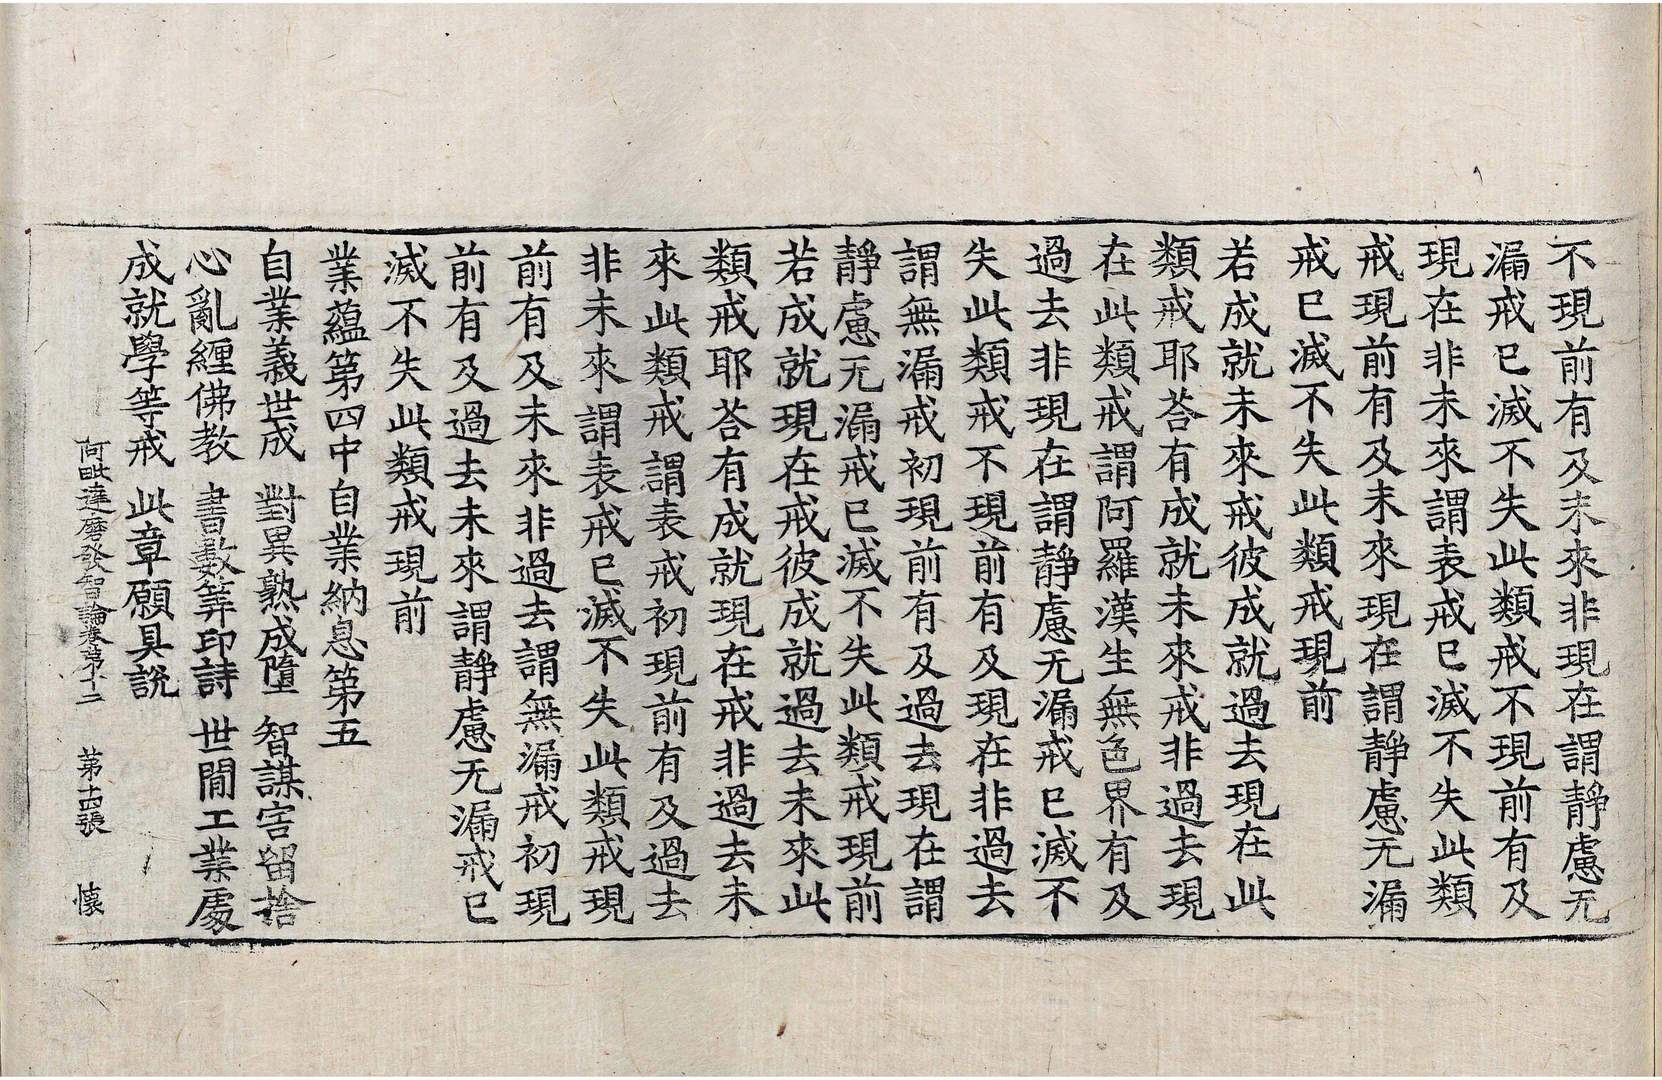 不現前有及未來非現在謂靜慮无
漏戒已滅不失此類戒不現前有及
現在非未來謂表戒已滅不失此類
戒現前有及未來現在謂靜慮无漏
戒已滅不失此類戒現前
若成就未來戒彼成就過去現在此
類戒耶荅有成就未來戒非過去現
在此類戒謂阿羅漢生無色界有及
過去非現在謂靜慮无漏戒已滅不
失此類戒不現前有及現在非過去
謂無漏戒初現前有及過去現在謂
靜慮无漏戒已滅不失此類戒現前
若成就現在戒彼成就過去未來此
類戒耶荅有成就現在戒非過去未
來此類戒謂表戒初現前有及過去
非未來謂表戒已滅不失此類戒現
前有及未來非過去謂無漏戒初現
前有及過去未來謂靜慮无漏戒已
滅不失此類戒現前
業蘊第四中自業納息第五
自業義世成 對異熟成墮 智謀害留捨
心亂纏佛教 書數筭印詩 世閒工業處
成就學等戒 此章願具說
阿毗達磨發智論卷第十二 第十四張 懷